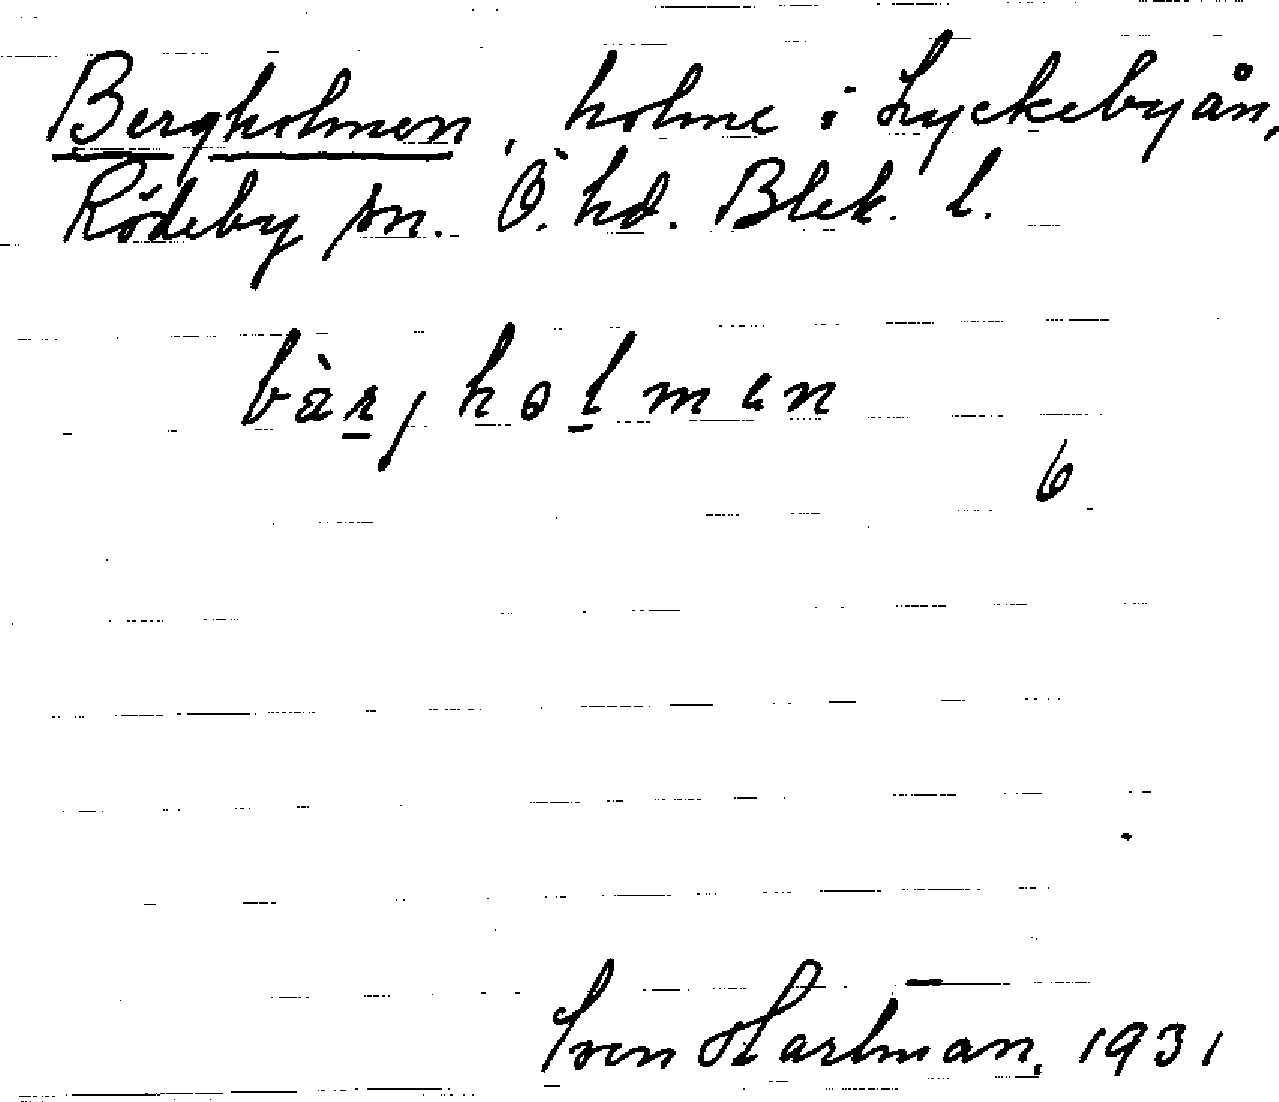 Bergholmen, holme i Lyckebyån,
Rödeby sn. Ö. hd. Blek. l.
bàrjholmen
6
Sven Hartman, 1931